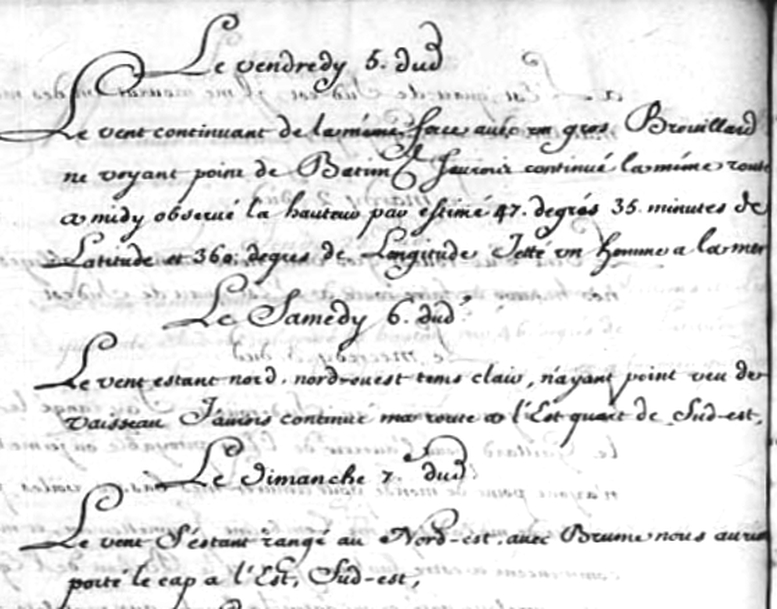 Le vendredy 5. dud
Le vent continuant de la même force avec un gros Brouillard
ne voyant point de Batim.t J'aurois continué la même route
a midy observé la hauteur par estimé 47. degrés 35. minutes de
Latitude et 360. degrés de Longitude Jetté un homme a la mer
Le Samedy 6. dud.
Le vent estant nord, nord-ouest tems clair, n'ayant point veu de
vaisseau J'aurois continué ma route a l'Est quart de Sud-est,
Le Dimanche 7. dud.
Le vent S'éstant rangé au Nord-est, avec Brume nous aurions
porté le cap a l'Est, Sud-est,